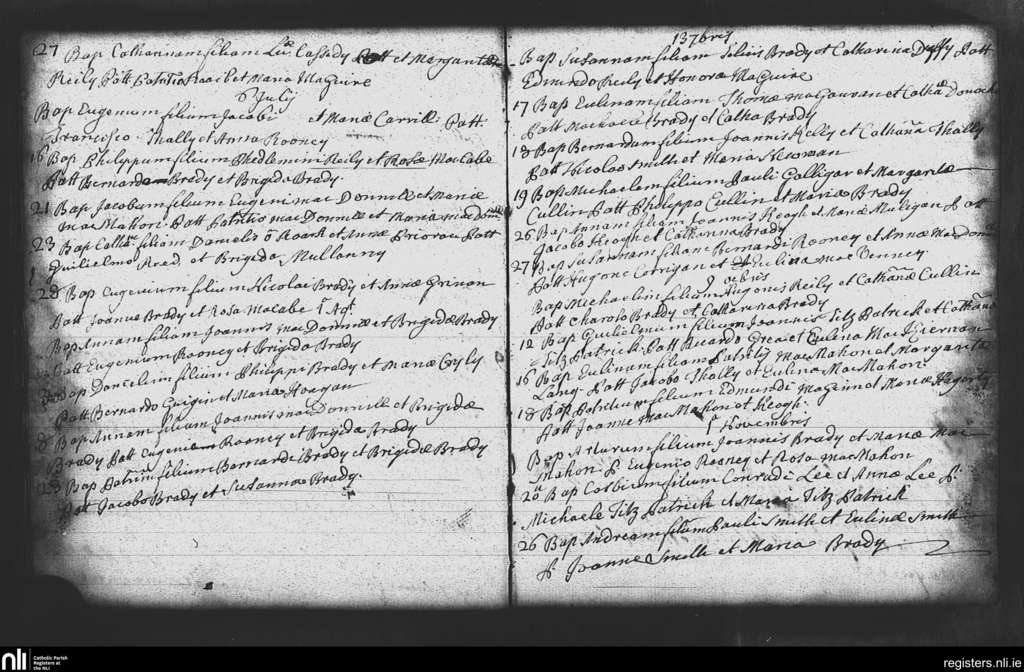 27 Bap Catharinam filiam Lu. Cassedy et Margaritæ
Reily Patt Patritio et Maria MaGuire
6 Julij
Bap Eugenium filium Jacobi et Mariæ Carrill: Patt.
Francisco Thally et Anna Rooney
16 Bap Philippum filium Phedlemini Reily et Rosæ MacCabe
Patt Bernardo Brady et Brigida Brady.
21 Bap Jacobum filium Eugenij mac Donnell et Mariæ
mac Mahon Patt Patritio mac Donnell et Maria
23 Bap Cath filiam Danielis ô Roark et Annæ Patt
Guilielmo Reed. et Brigida Mullanny
28 Bap Eugenium filium Nicolai Brady et Annæ
Patt Joanne Brady et Rosa Macabe 1 Agt.
Bap Annam filiam Joannis mac Donnell et Brigidæ Brady
Patt Eugenium Rooney et Brigida Brady
Bap filium Philippi Brady et Mariæ
Patt Bernardo et Maria
8 Bap Annam filiam Joannis mac Donnell et Brigidæ
Brady Patt Eugenio Rooney et Brigida Brady
23 Bap filium Bernardi Brady et Brigidæ Brady
Patt Jacobo Brady et Susanna Brady.
13 7bris
Bap Susannam filiam Brady et Catharina Duffy Patt
Edmundo Reily et Honora MaGuire
17 Bap Eulinam filiam Thomæ maGauran et Catha
Patt Brady et Catha Brady
18 Bap Bernardum filium Joannis Reily et Catharina Thally
Patt Nicolao Smith et Maria Newman
19 Bap Michaelem filium Pauli Galligar et Margaritæ
Cullin Patt Philippo Cullin et Maria Brady
26 Bap Annam filiam Joannis Keogh et Mariæ Muligan Patt
Jacobo Keogh et Catharina Brady
27 Bap Susannam filiam Bernardi Rooney et Annæ
Patt Hugone Corrigan et Eulina mac
8bris
Bap Michaelem filium Hugonis Reily et Cathanæ Cullin
Patt Charolo Brady et Catharina Brady
12 Bap filium Joannis Fitz Patrick et
Fitz Patrick Patt Ricardo et Eulena Mac Kiernan
16 Bap Eulinam filiam Patritij MacMahon et Margaritæ
Lang Patt Jacobo Thally et Eulina MacMahon
18 Bap filium Edmundi et Maria
Patt Joanne MacMahon et Keogh.
1ª Novembris
Bap filium Joannis Brady et Mariæ Mac
Mahon P. Eugenio Rooney et Rosa macMahon
20 Bap filium Conradi Lee et Annæ Lee P.
Michaele Fitz Patrick et Maria Fitz Patrick
26 Bap Andream filium Pauli Smith et Eulinæ Smith
P. Joanne Smith et Maria Brady
nli Catholic Parish
Registers at
the NLI
registers.nli.ie